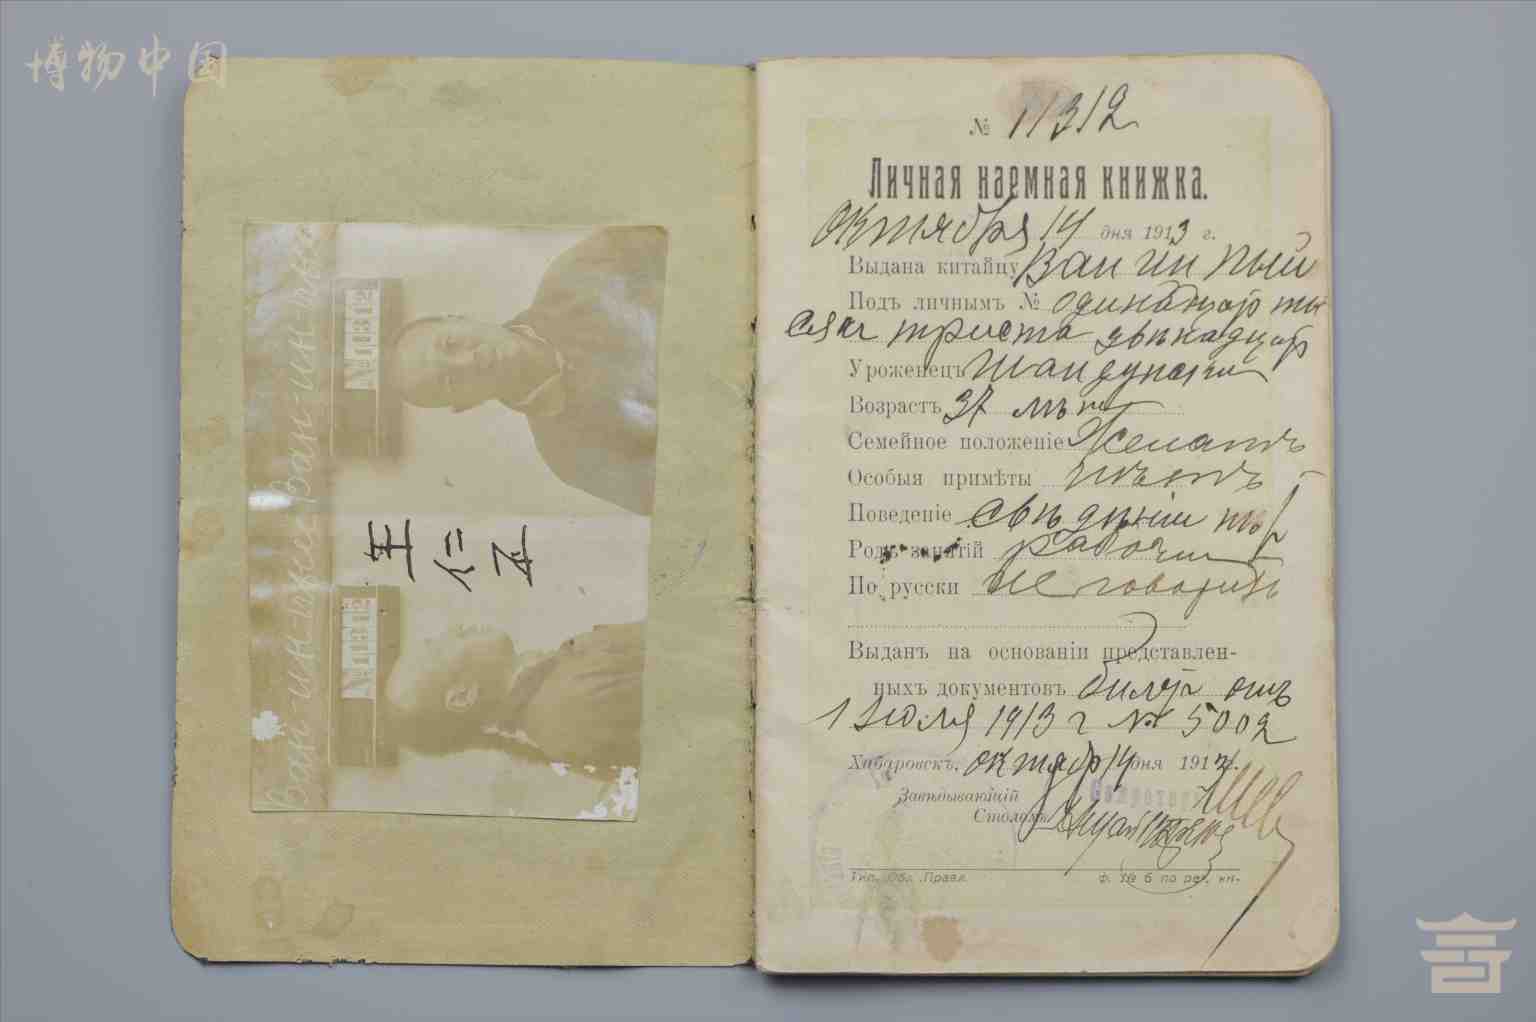 博物中国
№ 11312
王仁
№ 11312
№ 11312
Личная наемная книжка.
октября 14 дня 1913 г.
Выдана китайцу Ван ин
Подъ личнымъ № одинадцат ты
сяч триста двенадцат
Уроженецъ Шандунский
Возрастъ 37 лѣт
Семейное положеніе Женатъ
Особыя примѣты нѣтъ
Поведеніе свѣденій нет
Родъ занятій рабочий
По русски не говорит
Выданъ на основаніи представлен-
ныхъ документовъ билет отъ
1 Июля 1913 г № 5002
Хабаровскъ, октябр 14 дня 191
Завѣдывающій
Столомъ
Тип. Обл. Правл.
ф. № 6 по рег. кн.